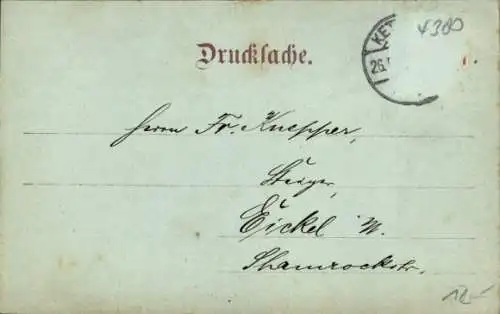 4300
KET
26.
Drucksache.
Herrn Fr. Knepper,
Steiger,
Eickel W.
Shamrockstr.
12.-